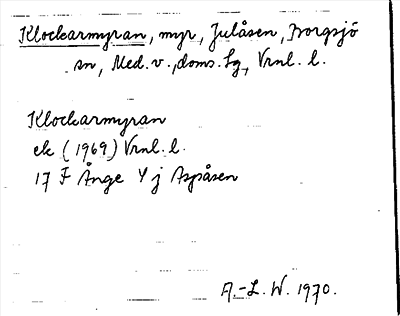 Klockarmyran, myr, Julåsen, Borgsjö
sn, Med. v., doms. Lg, Vrnl. l.
Klockarmyran
ek (1969) Vrnl. l.
17 F Ånge 4 j Aspåsen
A.-L. W. 1970.